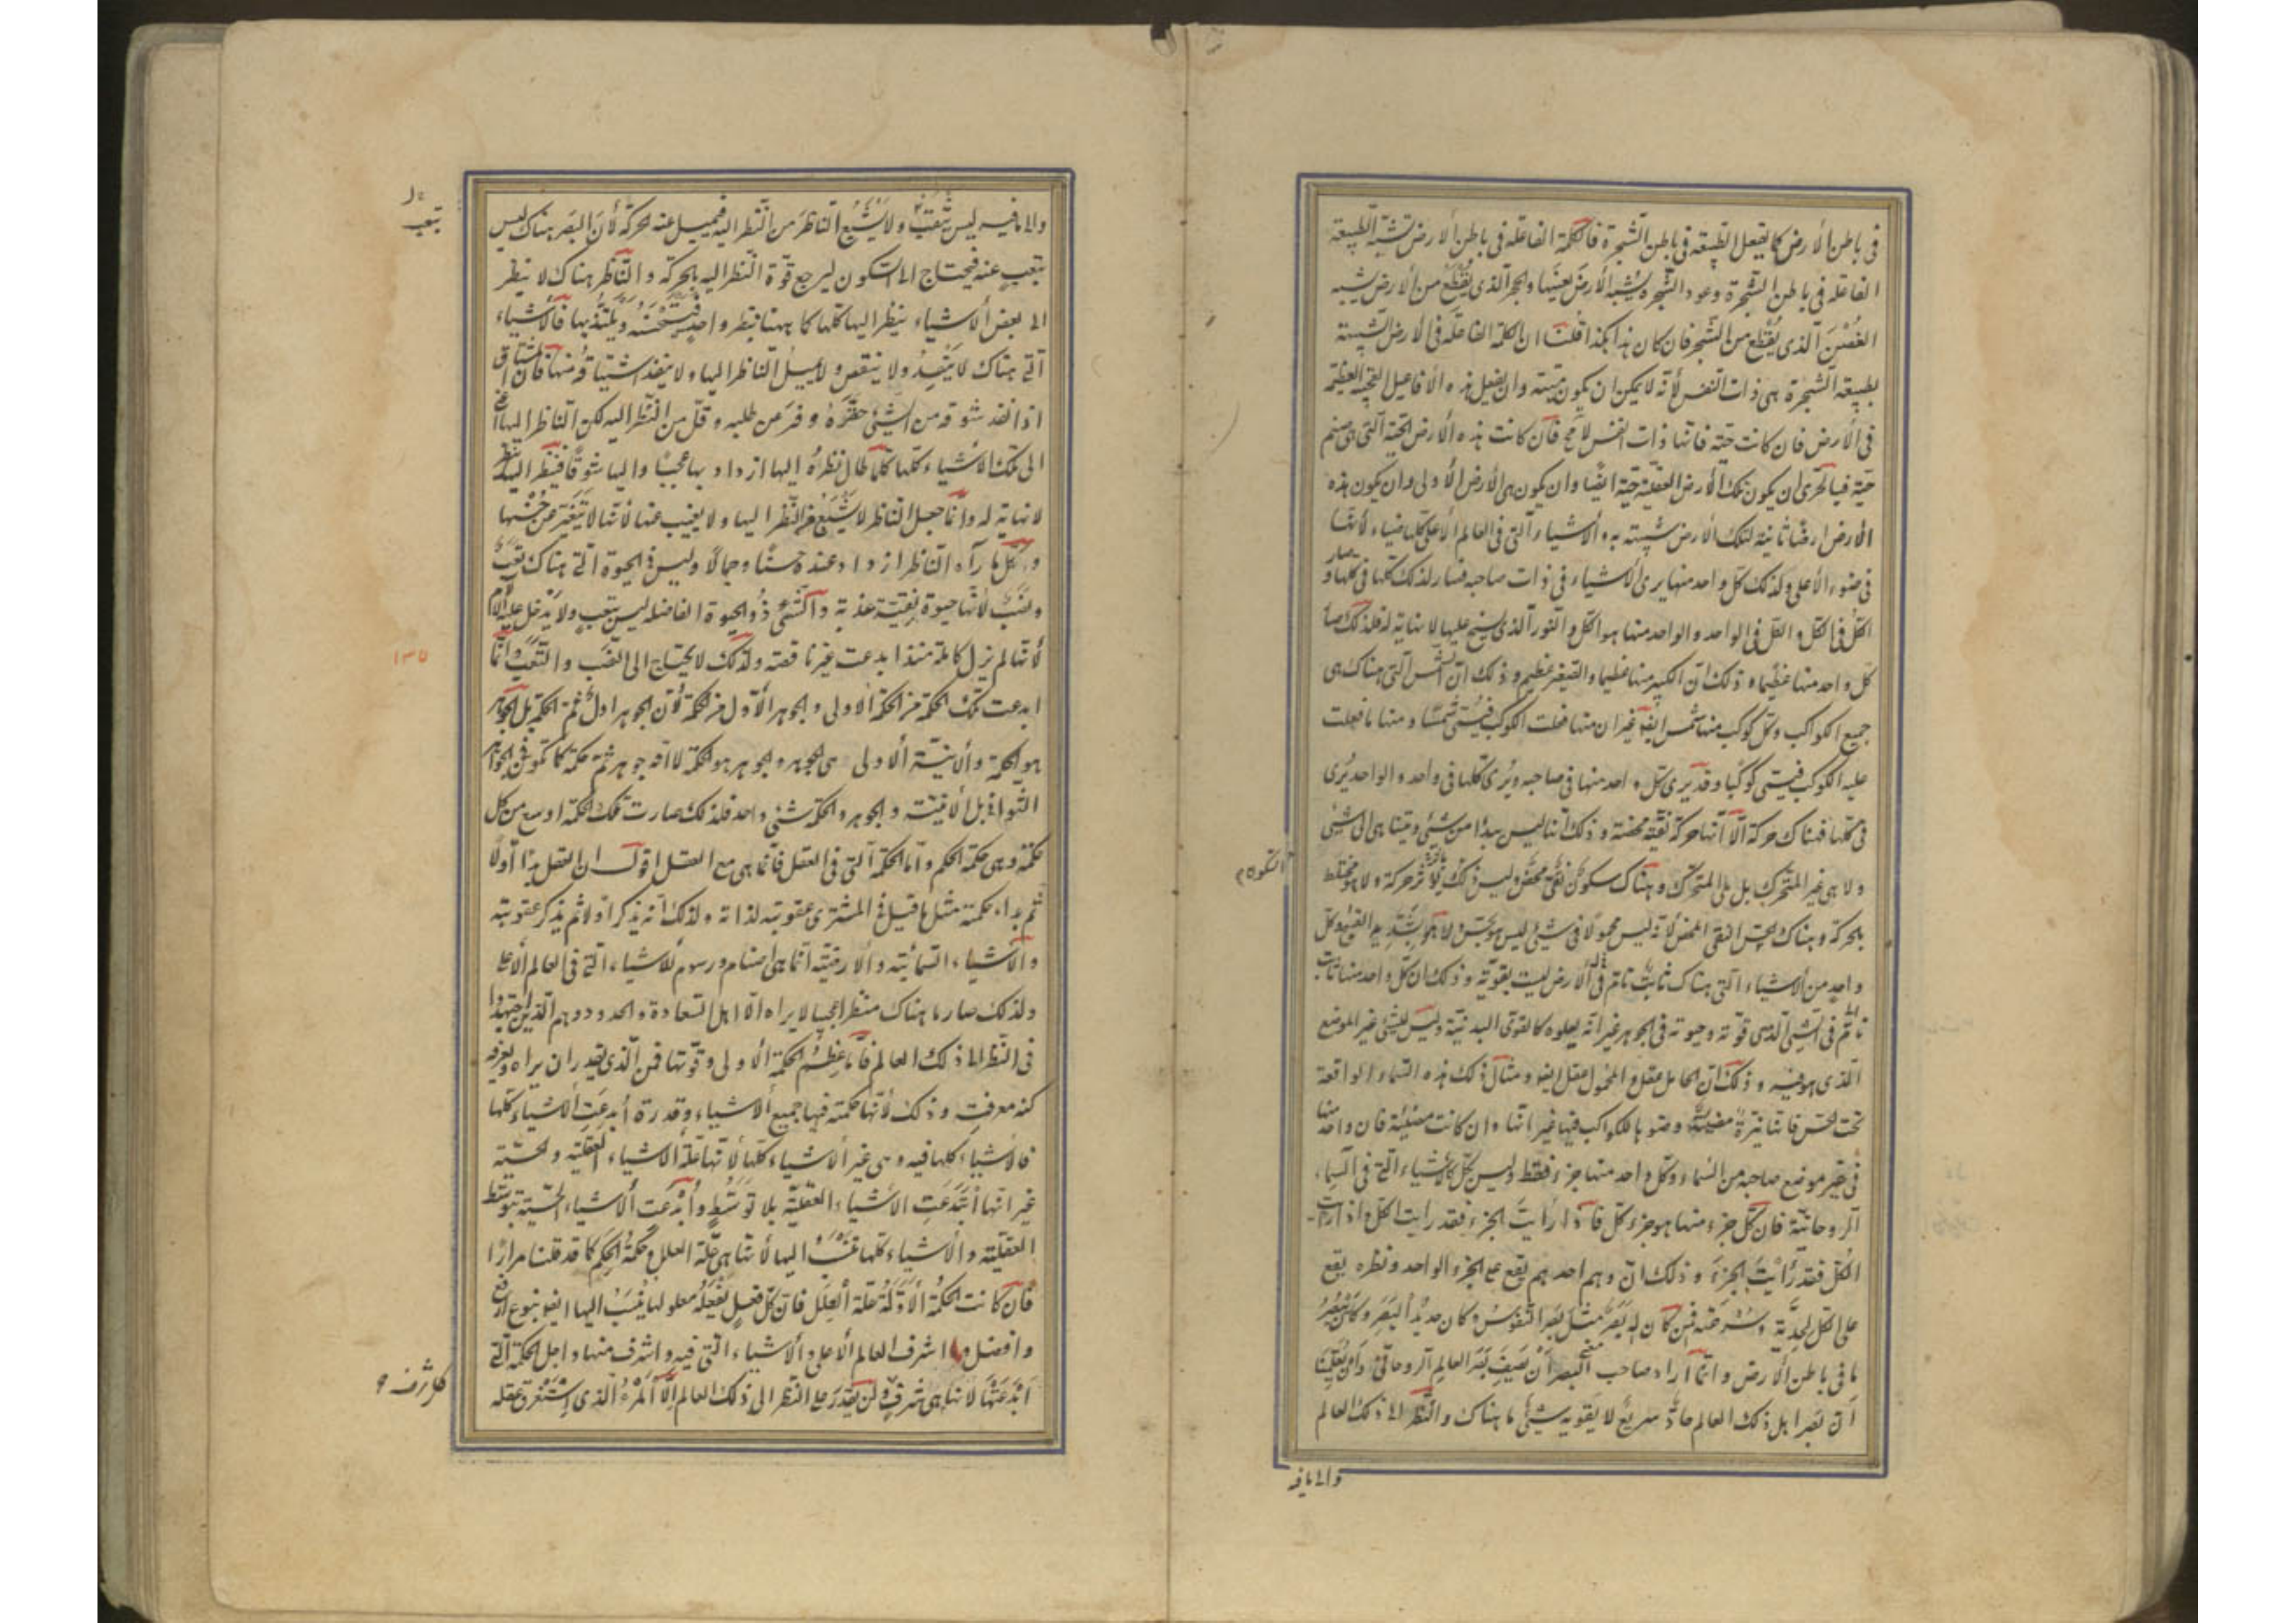 فى باطن الأرض كما يفعل الطبيعة فى باطن الشجرة فالكلمة الفاعلة فى باطن الأرض تشبه الطبيعة
الفاعلة فى باطن الشجرة وعود الشجرة يشبه الأرض بعينها والحجر الذى يُقطع من الأرض يشبه
الغُصن الذى يُقطع من الشجر فان كان هذا هكذا قلنا ان الكلمة الفاعلة فى الأرض الشبيهة
بطبيعة الشجرة هى ذات النفس لأنه لا يمكن ان يكون ميتة وان يفعل هذه الأفاعيل العجيبة العظيمة
فى الأرض فان كانت حيّة فانها ذات النفس لا مح فان كانت هذه الأرض الحسية التى هى صنم
حيّة فبالحرى ان يكون تلك الأرض العقلية حيّة ايضًا وان يكون هى الأرض الأولى وان يكون هذه
الأرض ارضًا ثانية لتلك الأرض شبيهة به والأشياء التى فى العالم الأعلى كلها ضياء لأنها
فى ضوء الأعلى ولذلك كل واحد منها يرى الأشياء فى ذات صاحبه فصار لذلك كلها فى كلها وصار
الكل فى الكل و الكل فى الواحد والواحد منها هو الكل والنور الذى يسنح عليها لا نهاية له فلذلك صار
كل واحد منها عظيما و ذلك ان الكبير منها عظيما والصغير عظيم وذلك ان الشمس التى هناك هى
جميع الكواكب وكل كوكب منها شمس ايضو غير ان منها ما غلبت الكوكب فيُسمّى شمسًا و منها ما غلبت
عليه الكوكب فيسمى كوكبًا وقد يرى كل واحد منها فى صاحبه ويُرى كلها فى واحد و الواحد يُرى
فى كلها فهناك حركة الّا انها حركة نقية محضة و ذلك انها ليس يبدأ من شئ ويتناهى الى شئ
ولا هى غير المتحرك بل هى المتحرك وهناك سكون نقى محض وليس ذلك بأثر حركة ولا هو مختلط
بالحركة وهناك الحسن النقى المحض لأنه ليس محمولًا فى شئ ليس هو بحسن لا هو بشديد القبح وكل
واحد من الأشياء التى هناك ثابت قائم فى الأرض ليست بغريبة و ذلك ان كل واحد منها ثابت
قائم فى الشئ الذى قوته وحيوته فى الجوهر غير انه يعلوه كالقوى البدنية وليس للشئ غير الموضع
الذى هو فيه و ذلك ان الحامل عقل و المحمول عقل ايضو ومثال ذلك هذه السماء الواقعة
تحت الحس فانها نيرة مضيئة وضوءها للكواكب فيها غير انها وان كانت مضيئة فان واحد منها
فى غير موضع صاحبه من السماء وكل واحد منها جزء فقط وليس بكل كالأشياء التى فى السماء
الروحانية فان كل جزء منها هو جزء وكل فاذا رأيت الجزء فقد رايت الكل واذا رايت
الكل فقد رأيت الجزء و ذلك ان وهم احدهم يقع على الجزء الواحد ونظره يقع
على الكل لحدّته وسرعته فمن كان له بصر مثل بصر النفوس وكان حديد البصر وكان يبصر
ما فى باطن الأرض وانما اراد صاحب البصر أن يصف بصر العالم الروحانى و أن يُعلمنا
أن بصر اهل ذلك العالم حادّ سريع لا يفوته شئ مما هناك والنظر الى ذلك العالم
والى ما فيه
والى ما فيه ليس بتَعَب ولا يَشبَع الناظر من النظر اليه فيميل عنه بحركة لأن البصر هناك ليس
يتعب عنه فيحتاج الى السكون ليرجع قوة النظر اليه بالحركة والناظر هناك لا ينظر
الى بعض الأشياء ينظر اليها كلها كما يهنا فينظر واحد فيستحسنه ويلتذ بها فالأشياء
التى هناك لا ينفد ولا ينقص ولا يميل الناظر اليها ولا ينفد اشتياقه منها فان المشتاق
اذا نفد شوقه من الشئ حقّره وفرغ من طلبه وقلّ من النظر اليه لكن الناظر اليها
الى تلك الأشياء كلها كلما طال نظره اليها ازداد بها عجبًا واليها شوقًا فينظر اليها بنظر
لا نهاية له وانما جعل الناظر لا يشبع من النظر اليها ولا يغيب عنها لأنها لا تتغير عن حسنها
وكل ما رآه الناظر ازداد عنده حسنًا وجمالًا وليس فى الحيوة التى هناك تعب
ونصب لأنها حيوة نقية عذبة والشئ ذو الحيوة الفاضلة ليس يتعب ولا يدخل عليه الألم
لأنها لم يزل كاملة منذ ابدعت غير ناقصة ولذلك لا يحتاج الى النصب والتعب وانما
ابدعت تلك الحكمة من الحكمة الأولى والجوهر الأول من الحكمة لأن الجوهر اول ثم الحكمة بل الجوهر
هو الحكمة والأنية الأولى هى الجوهر والجوهر هو الحكمة لا انه جوهر ثم حكمة كما تكون فى الجواهر
الثوانى بل الأنية والجوهر والحكمة شئ واحد فلذلك صارت تلك الحكمة اوسع من كل
حكمة وهى حكمة الحكم وأما الحكمة التى فى العقل فانما هى مع العقل اقول ان العقل بدا أولًا
ثم بدا حكمته مثل ما قيل فى المشترى عقوبته لذاته ولذلك أنه يذكر اولا ثم يذكر عقوبته
والأشياء السمائية والأرضية انما هى اصنام ورسوم للأشياء التى فى العالم الأعلى
ولذلك صار ما هناك منظرا عجيبا لا يراه الّا اهل السعادة والحدود وهم الذين اجتهدوا
فى النظر الى ذلك العالم فأما عظم الحكمة الأولى وقوتها فمن الذى يقدر ان يراه ويعرفه
كنه معرفته وذلك لأنها حكمة فيها جميع الأشياء وقدرة أبدعت الأشياء كلها
فالأشياء كلها فيه وهى غير الأشياء كلها لأنها علة الأشياء العقلية والحسية
غير انها ابتدعت الأشياء العقلية بلا توسط وأبدعت الأشياء الحسية بتوسط
العقلية والأشياء كلها تنسب اليها لأنها هى علة العلل وحكمة الحكم كما قد قلنا مرارًا
فان كانت الحكمة الأولى علة العلل فان كل فعل يفعله معلولها ينسب اليها ايضو بنوع ارفع
وافضل وما اشرف العالم الأعلى والأشياء التى فيه واشرف منها واجل الحكمة التى
ابدعتها لأنها هى شرف ولن يقدر على النظر الى ذلك العالم الّا المرء الذى استغرق عقله
السكون
يتعب
١٣٥
كل شرف